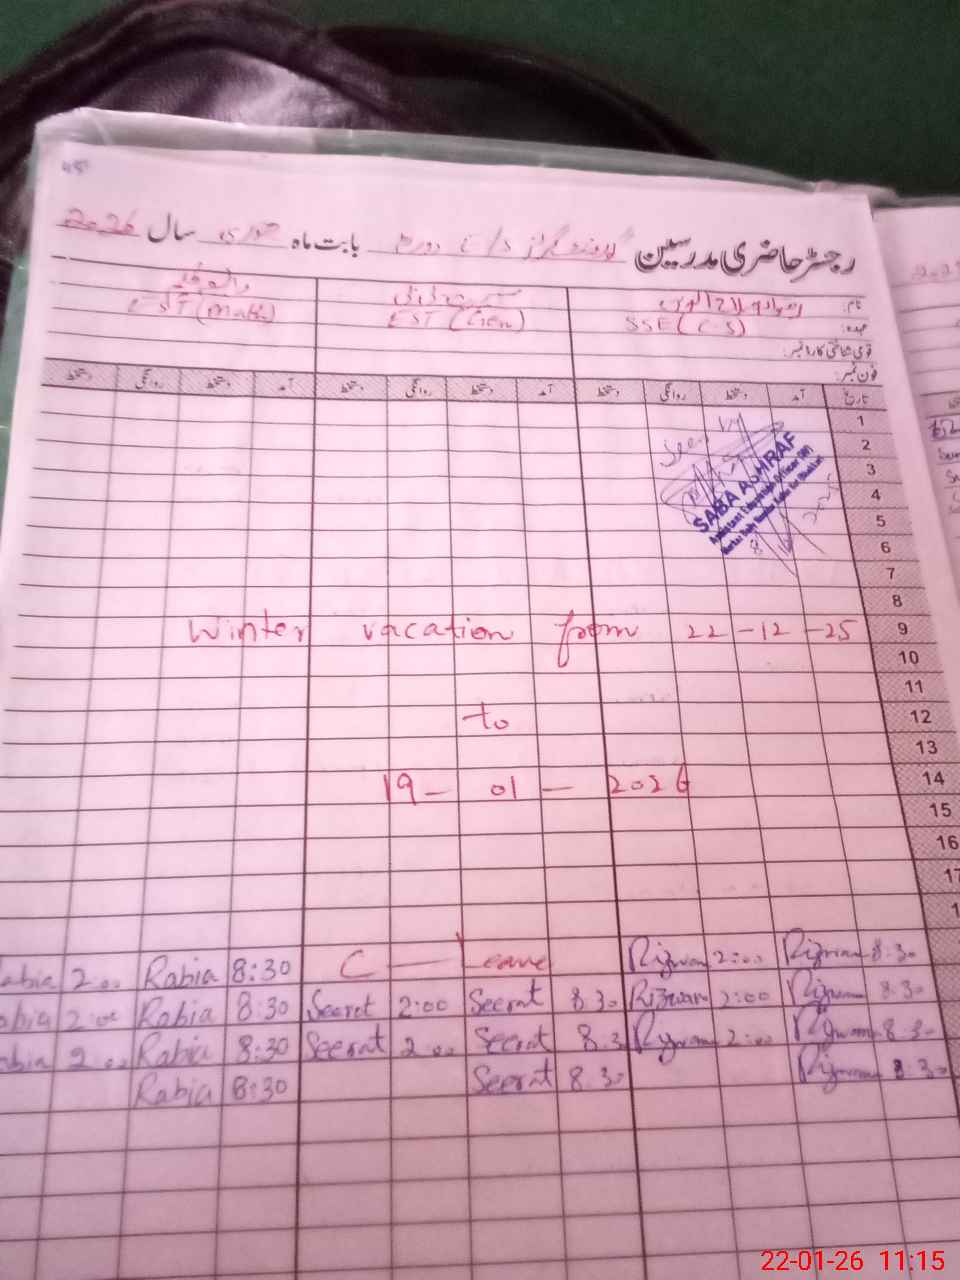 45
رجسٹر حاضری مدرسین گورنمنٹ گرلز بابت ماہ جنوری سال 2026
نام:
عہدہ: SSE (C.S) EST (Gen) EST (Math)
قومی شناختی کارڈ نمبر:
فون نمبر:
تاریخ آمد دستخط روانگی دستخط آمد دستخط روانگی دستخط آمد دستخط روانگی دستخط
1
2
3
4
5
6
7
8
Seen
SABA ASHRAF
9
Winter vacation from 22-12-25
10
11
12
to
13
14
19 - 01 - 2026
15
16
17
Rabia 8:30 C — Leave Rizwan 2:00 Rizwan 8:30
2:00 Rabia 8:30 Seerat 2:00 Seerat 8:30 Rizwan 2:00 Rizwan 8:30
2:00 Rabia 8:30 Seerat 2:00 Seerat 8:3 Rizwan 2:00 Rizwan 8:30
Rabia 8:30 Seerat 8:30 Rizwan 8:30
22-01-26 11:15